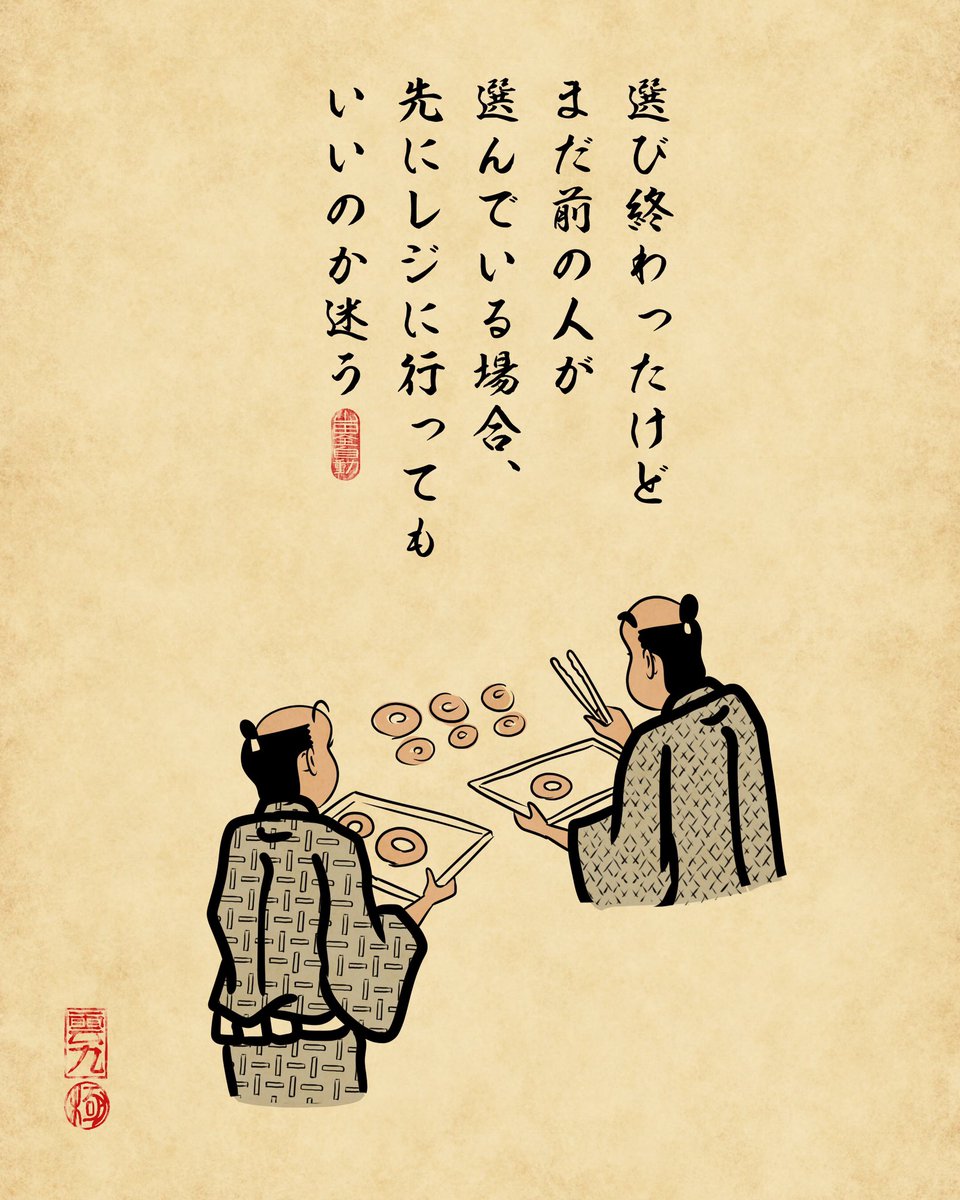 選び終わったけど
まだ前の人が
選んでいる場合、
先にレジに行っても
いいのか迷う